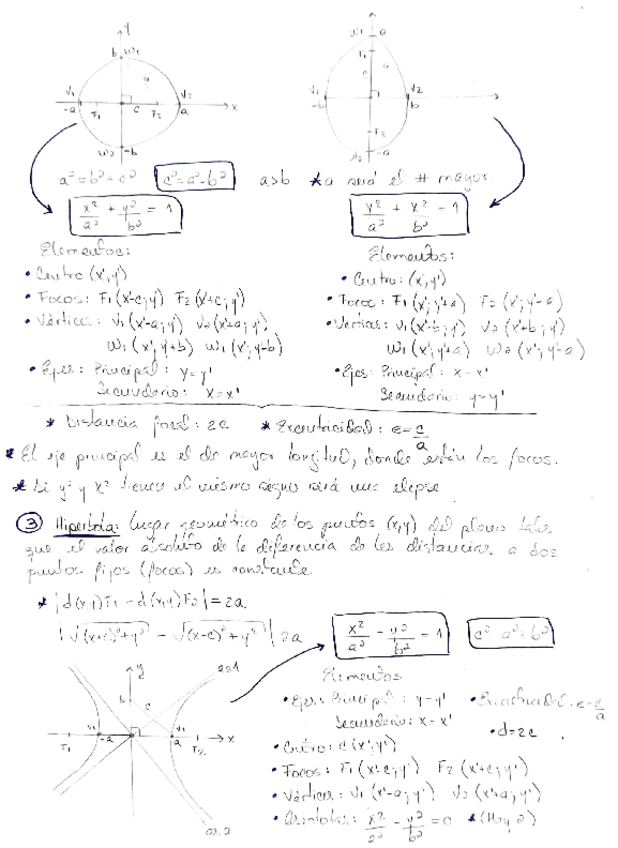 y
b w1
v1 v2
-a F1 c F2 a x
w2 -b
w1 a
F1
v1 v2
-b b
F2
w2 -a
a² = b² + c² c² = a² - b² a>b * a será el # mayor.
x²/a² + y²/b² = 1
y²/a² + x²/b² = 1
Elementos:
• Centro (x', y')
• Focos: F1 (x'-c; y') F2 (x'+c; y')
• Vértices: v1 (x'-a; y') v2 (x'+a; y')
w1 (x'; y'+b) w1 (x'; y'-b)
• Ejes: Principal: y=y'
Secundario: x=x'
Elementos:
• Centro: (x', y')
• Focos: F1 (x'; y'+a) F2 (x'; y'-a)
• Vertices: v1 (x'-b; y') v2 (x'+b; y')
w1 (x'; y'+a) w2 (x'; y'-a)
• Ejes: Principal: x-x'
Secundario: y=y'
* Distancia focal: 2c * Excentricidad: e=c/a
* El eje principal es el de mayor longitud, donde están los focos.
* Si y² y x² tienen el mismo signo será una elipse
③ Hipérbola: lugar geométrico de los puntos (x,y) del plano tales
que el valor absoluto de la diferencia de las distancias a dos
puntos fijos (focos) es constante.
* |d(x,y)F1 - d(x,y)F2| = 2a
|√(x+c)²+y² - √(x-c)²+y²| 2a
x²/a² - y²/b² = 1 c² = a² + b²
y as.1
b c
F1 v1 -a v1 a F2 x
as.2
Elementos
• Ejes: Principal: y-y'
Secundario: x=x'
• Excentricidad: e=c/a
• d=2c
• Centro: c (x', y')
• Focos: F1 (x'-c; y') F2 (x'+c; y')
• Vértices: v1 (x'-a; y') v2 (x'+a; y')
• Asíntotas: x²/a² - y²/b² = 0 * (Hay 2)